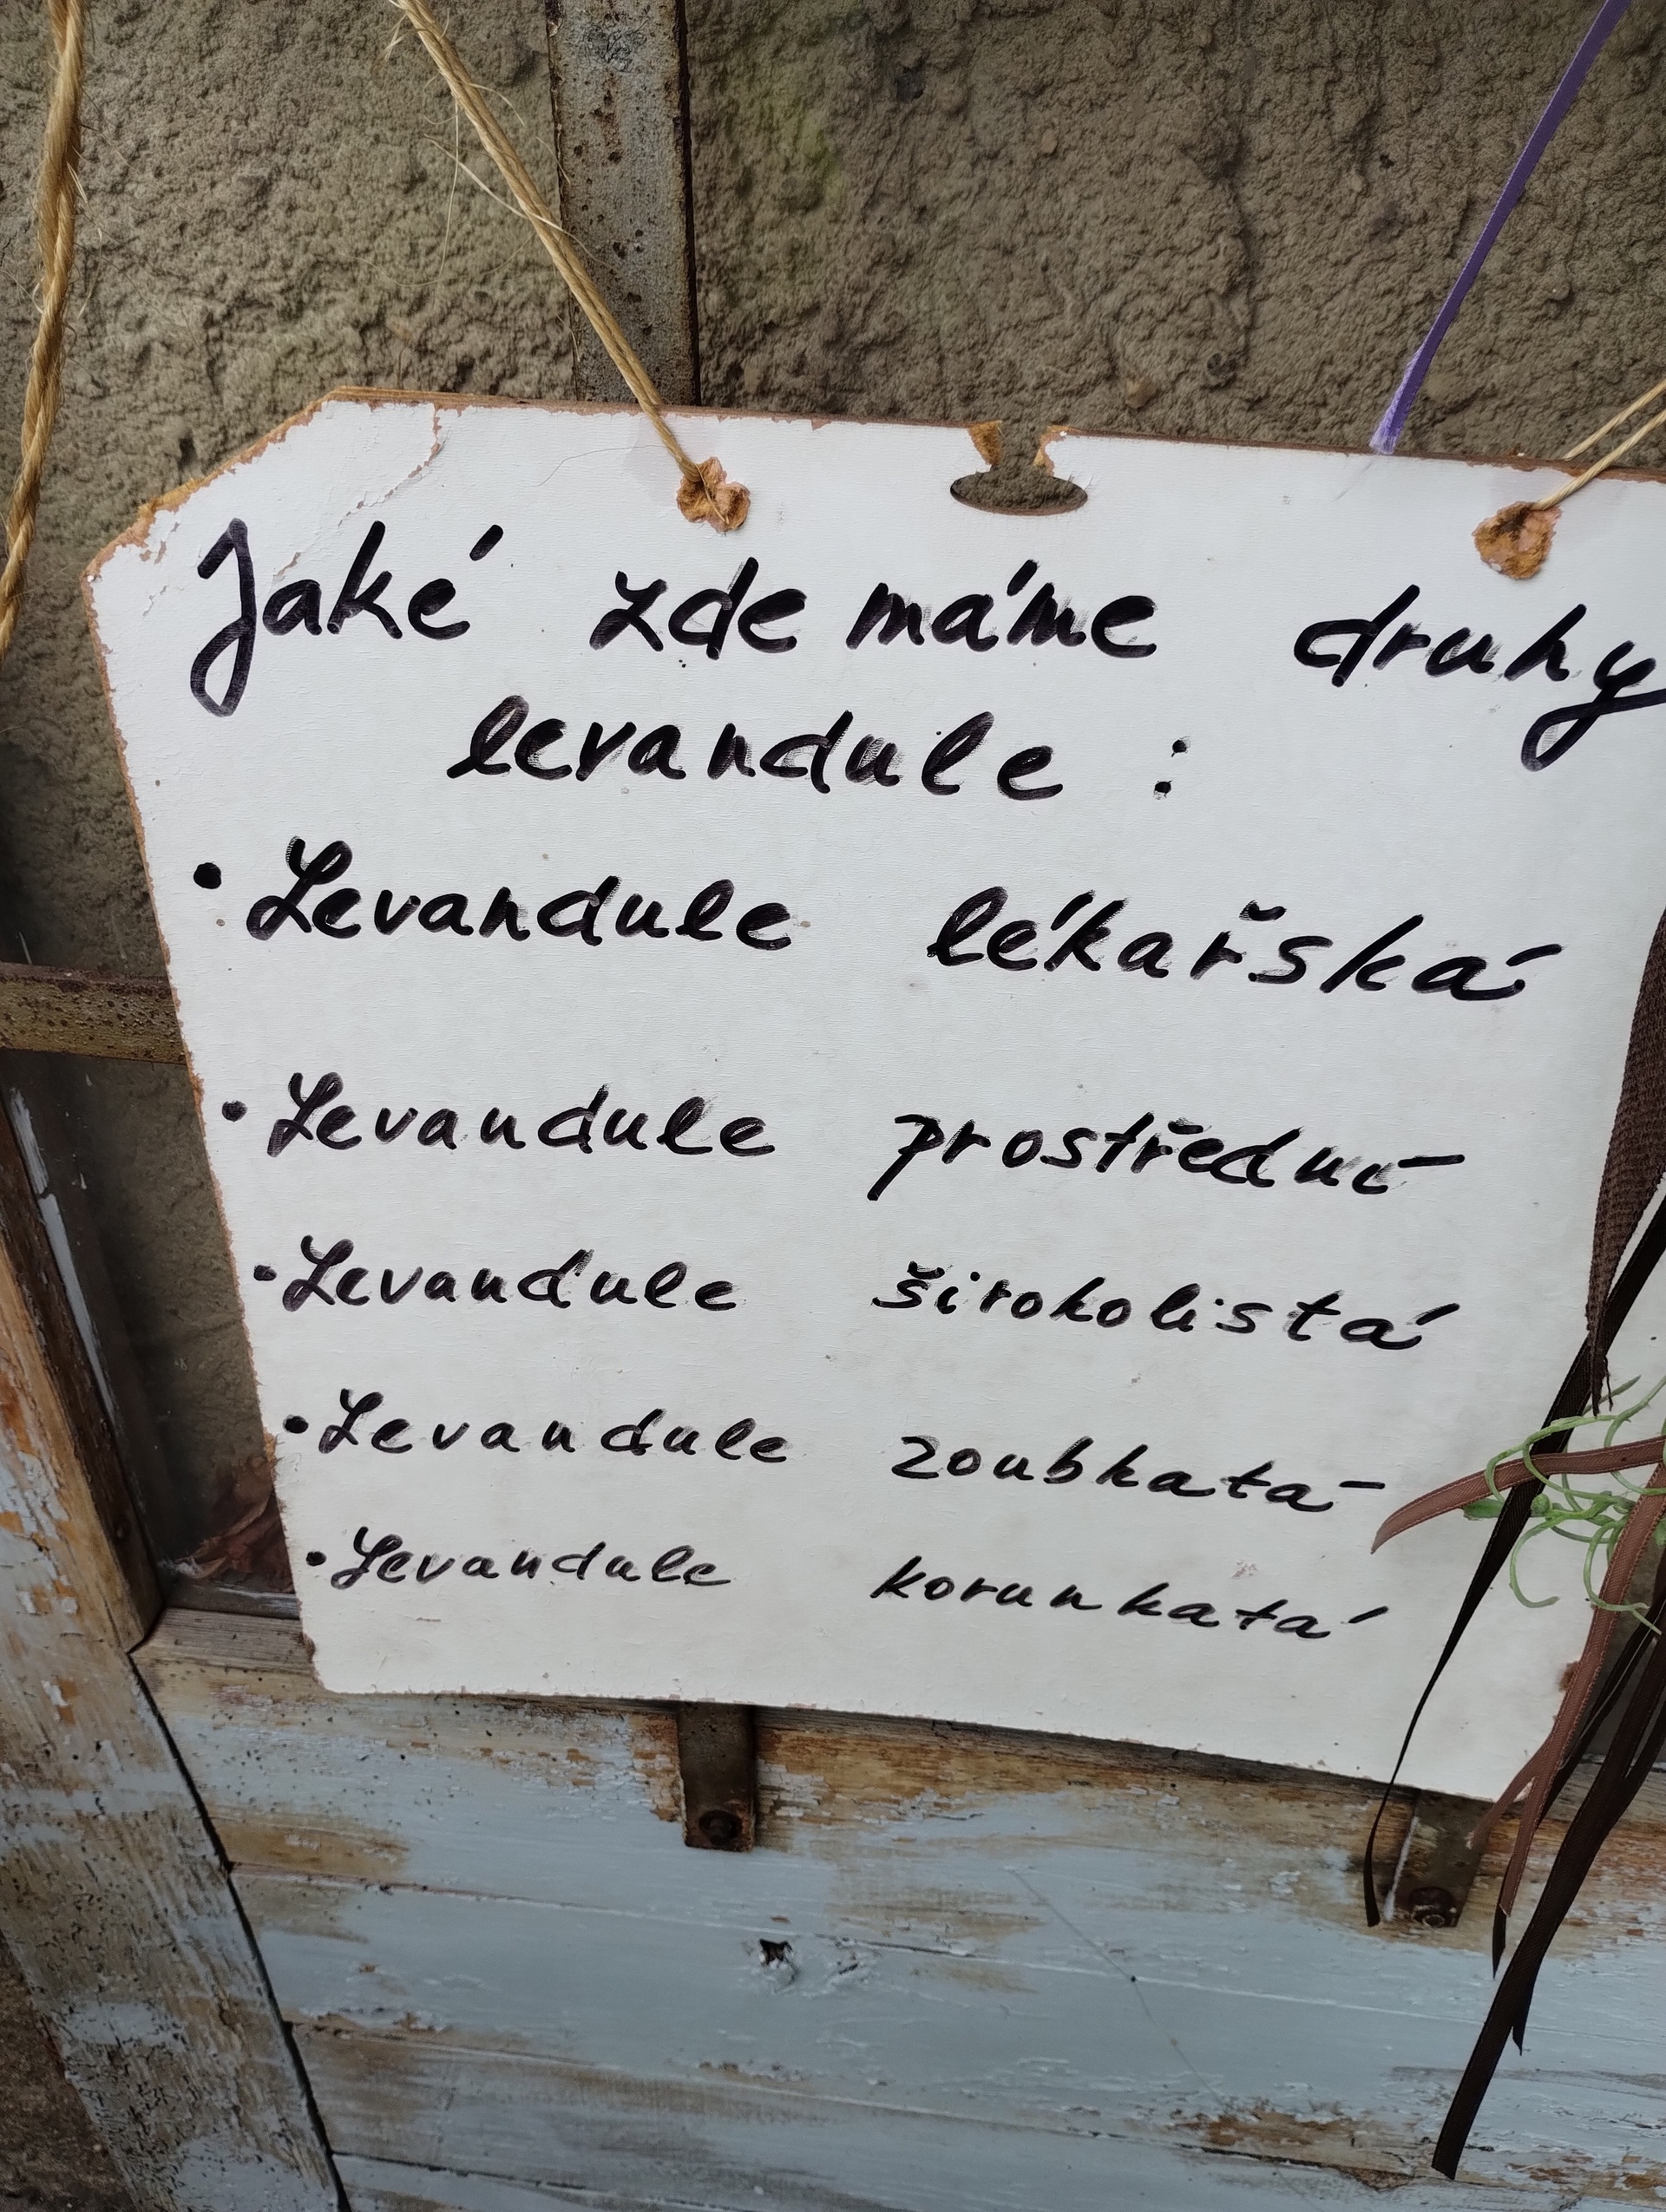 Jaké zde máme druhy
levandule :
• Levandule lékařská
• Levandule prostřední
• Levandule širokolistá
• Levandule zoubkatá
• Levandule korunkatá